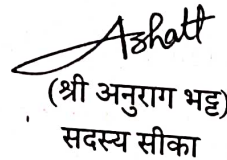 Abhatt
(श्री अनुराग भट्ट)
सदस्य सीका